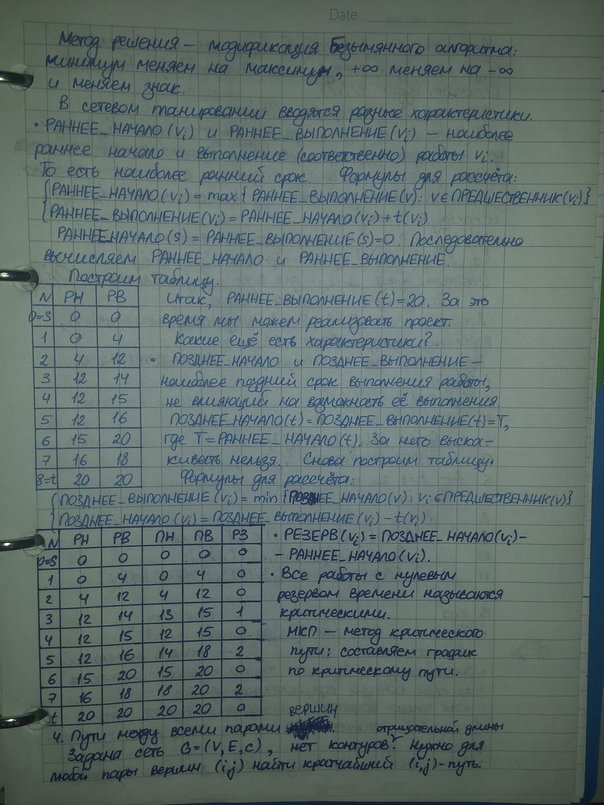 Date
Метод решения — модификация Безымянного алгоритма:
минимум меняем на максимум, +∞ меняем на -∞
и меняем знак.
В сетевом планировании вводятся разные характеристики.
• РАННЕЕ_НАЧАЛО(vi) и РАННЕЕ_ВЫПОЛНЕНИЕ(vi) — наиболее
раннее начало и выполнение (соответственно) работы vi.
То есть наиболее ранний срок. Формулы для рассчёта:
{РАННЕЕ_НАЧАЛО(vi) = max{РАННЕЕ_ВЫПОЛНЕНИЕ(v): v∈ПРЕДШЕСТВЕННИК(vi)}
{РАННЕЕ_ВЫПОЛНЕНИЕ(vi) = РАННЕЕ_НАЧАЛО(vi)+t(vi)
РАННЕЕ_НАЧАЛО(s) = РАННЕЕ_ВЫПОЛНЕНИЕ(s)=0. Последовательно
вычисляем РАННЕЕ_НАЧАЛО и РАННЕЕ_ВЫПОЛНЕНИЕ.
Построим таблицу.
N РН РВ
0=s 0 0
1 0 4
2 4 12
3 12 14
4 12 15
5 12 16
6 15 20
7 16 18
8=t 20 20
Итак, РАННЕЕ_ВЫПОЛНЕНИЕ(t)=20. За это
время мы можем реализовать проект.
Какие ещё есть характеристики?
• ПОЗДНЕЕ_НАЧАЛО и ПОЗДНЕЕ_ВЫПОЛНЕНИЕ —
наиболее поздний срок выполнения работы,
не влияющий на возможность её выполнения.
ПОЗДНЕЕ_НАЧАЛО(t)=ПОЗДНЕЕ_ВЫПОЛНЕНИЕ(t)=T,
где T=РАННЕЕ_НАЧАЛО(t). За него выска-
кивать нельзя. Снова построим таблицу.
Формулы для рассчёта:
{ПОЗДНЕЕ_ВЫПОЛНЕНИЕ(vi) = min{ПОЗДНЕЕ_НАЧАЛО(v): vi∈ПРЕДШЕСТВЕННИК(v)}
{ПОЗДНЕЕ_НАЧАЛО(vi)=ПОЗДНЕЕ_ВЫПОЛНЕНИЕ(vi)-t(vi)
N РН РВ ПН ПВ РЗ
0=s 0 0 0 0 0
1 0 4 0 4 0
2 4 12 4 12 0
3 12 14 13 15 1
4 12 15 12 15 0
5 12 16 14 18 2
6 15 20 15 20 0
7 16 18 18 20 2
t 20 20 20 20 0
• РЕЗЕРВ(vi)=ПОЗДНЕЕ_НАЧАЛО(vi)-
-РАННЕЕ_НАЧАЛО(vi).
• Все работы с нулевым
резервом времени называются
критическими.
МКП — метод критического
пути; составляем график
по критическому пути.
вершин
4. Пути между всеми парами
отрицательной длины
Задана сеть G=(V,E,c), нет контуров. Нужно для
любой пары вершин (i,j) найти кратчайший (i,j)-путь.